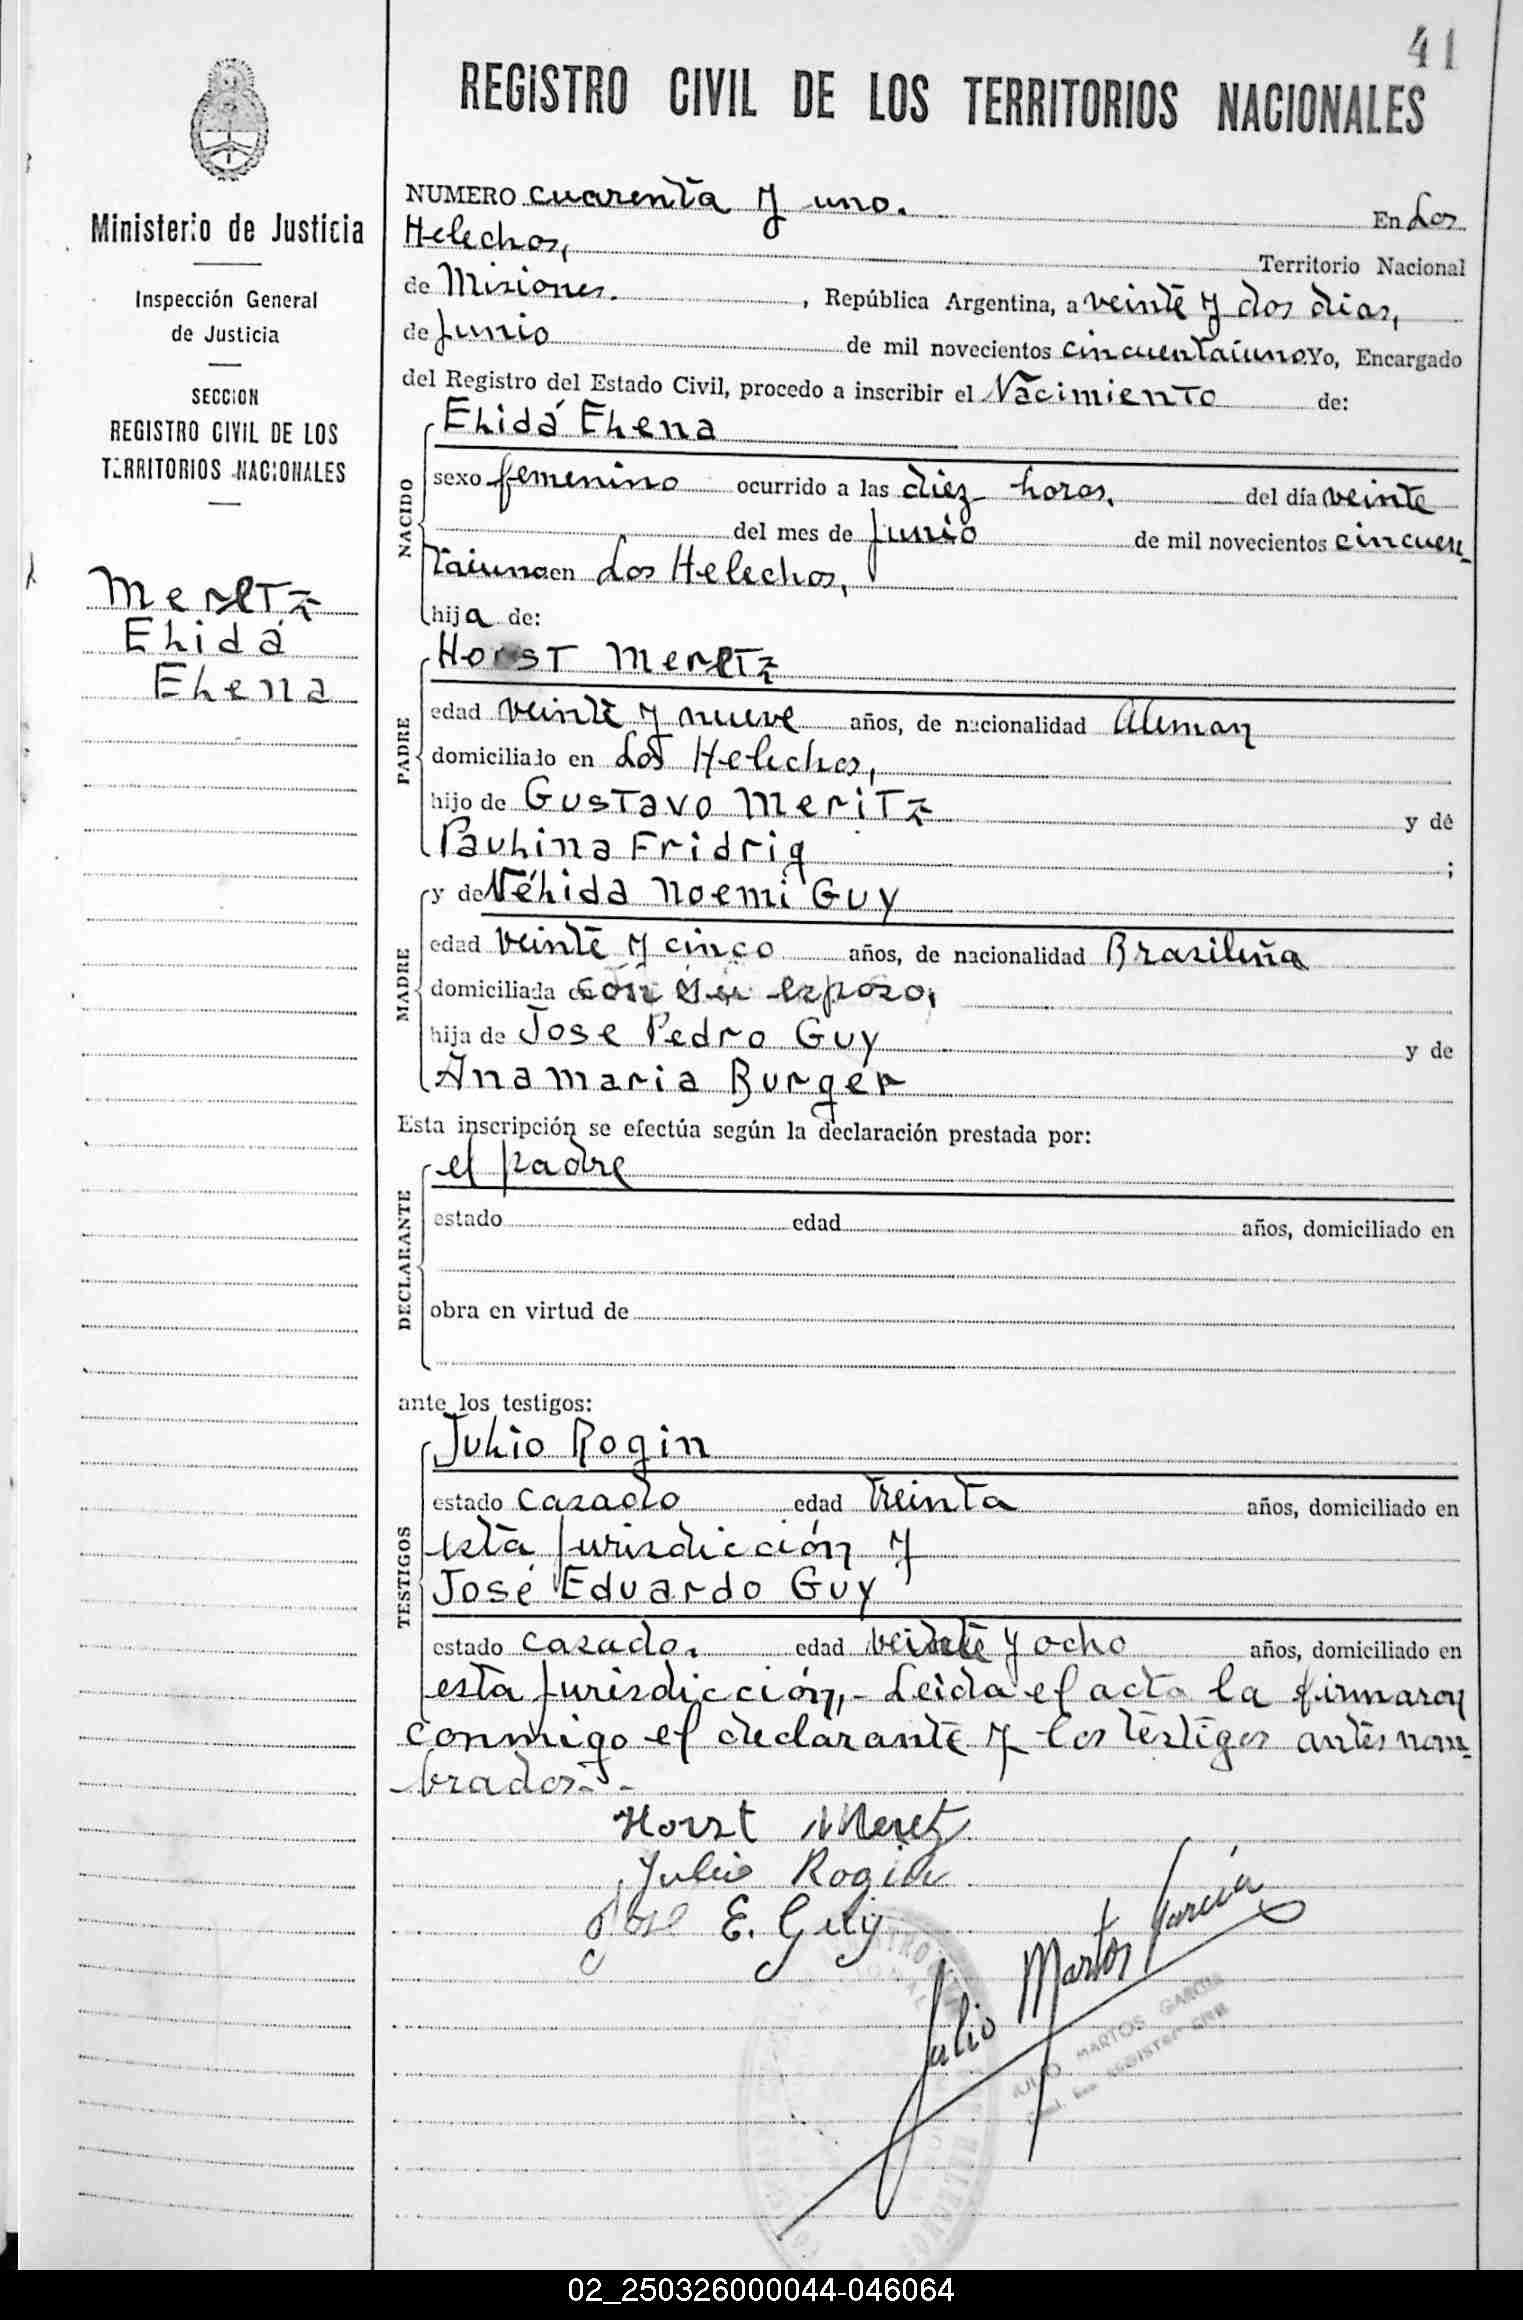 41
REGISTRO CIVIL DE LOS TERRITORIOS NACIONALES
Ministerio de Justicia
Inspección General
de Justicia
SECCION
REGISTRO CIVIL DE LOS
TERRITORIOS NACIONALES
Meretz
Elidá
Elena
NUMERO cuarenta y uno. En Los
Helechos, Territorio Nacional
de Misiones. , República Argentina, a veinte y dos dias,
de Junio de mil novecientos cincuentaiuno. Yo, Encargado
del Registro del Estado Civil, procedo a inscribir el Nacimiento de:
NACIDO
Elidá Elena
sexo femenino ocurrido a las diez horas. del día veinte
del mes de Junio de mil novecientos cincuen_
taiuno en Los Helechos,
hija de:
PADRE
Horst Meretz
edad veinte y nueve años, de nacionalidad Aleman
domiciliado en Los Helechos,
hijo de Gustavo Meritz y de
Paulina Fridriq ;
MADRE
y de Nélida Noemi Guy
edad veinte y cinco años, de nacionalidad Brasileña
domiciliada con su esposo,
hija de Jose Pedro Guy y de
Ana Maria Burger
Esta inscripción se efectúa según la declaración prestada por:
DECLARANTE
el padre
estado edad años, domiciliado en
obra en virtud de
ante los testigos:
TESTIGOS
Julio Rogin
estado casado edad treinta años, domiciliado en
esta Jurisdicción y
José Eduardo Guy
estado casado. edad veinte y ocho años, domiciliado en
esta Jurisdicción,- Leida el acta la firmaron
conmigo el declarante y los testigos antes nom_
brados.-
Horst Meretz
Julio Rogin
Jose E. Guy
Julio Martos Garcia
JULIO MARTOS GARCIA
02_250326000044-046064